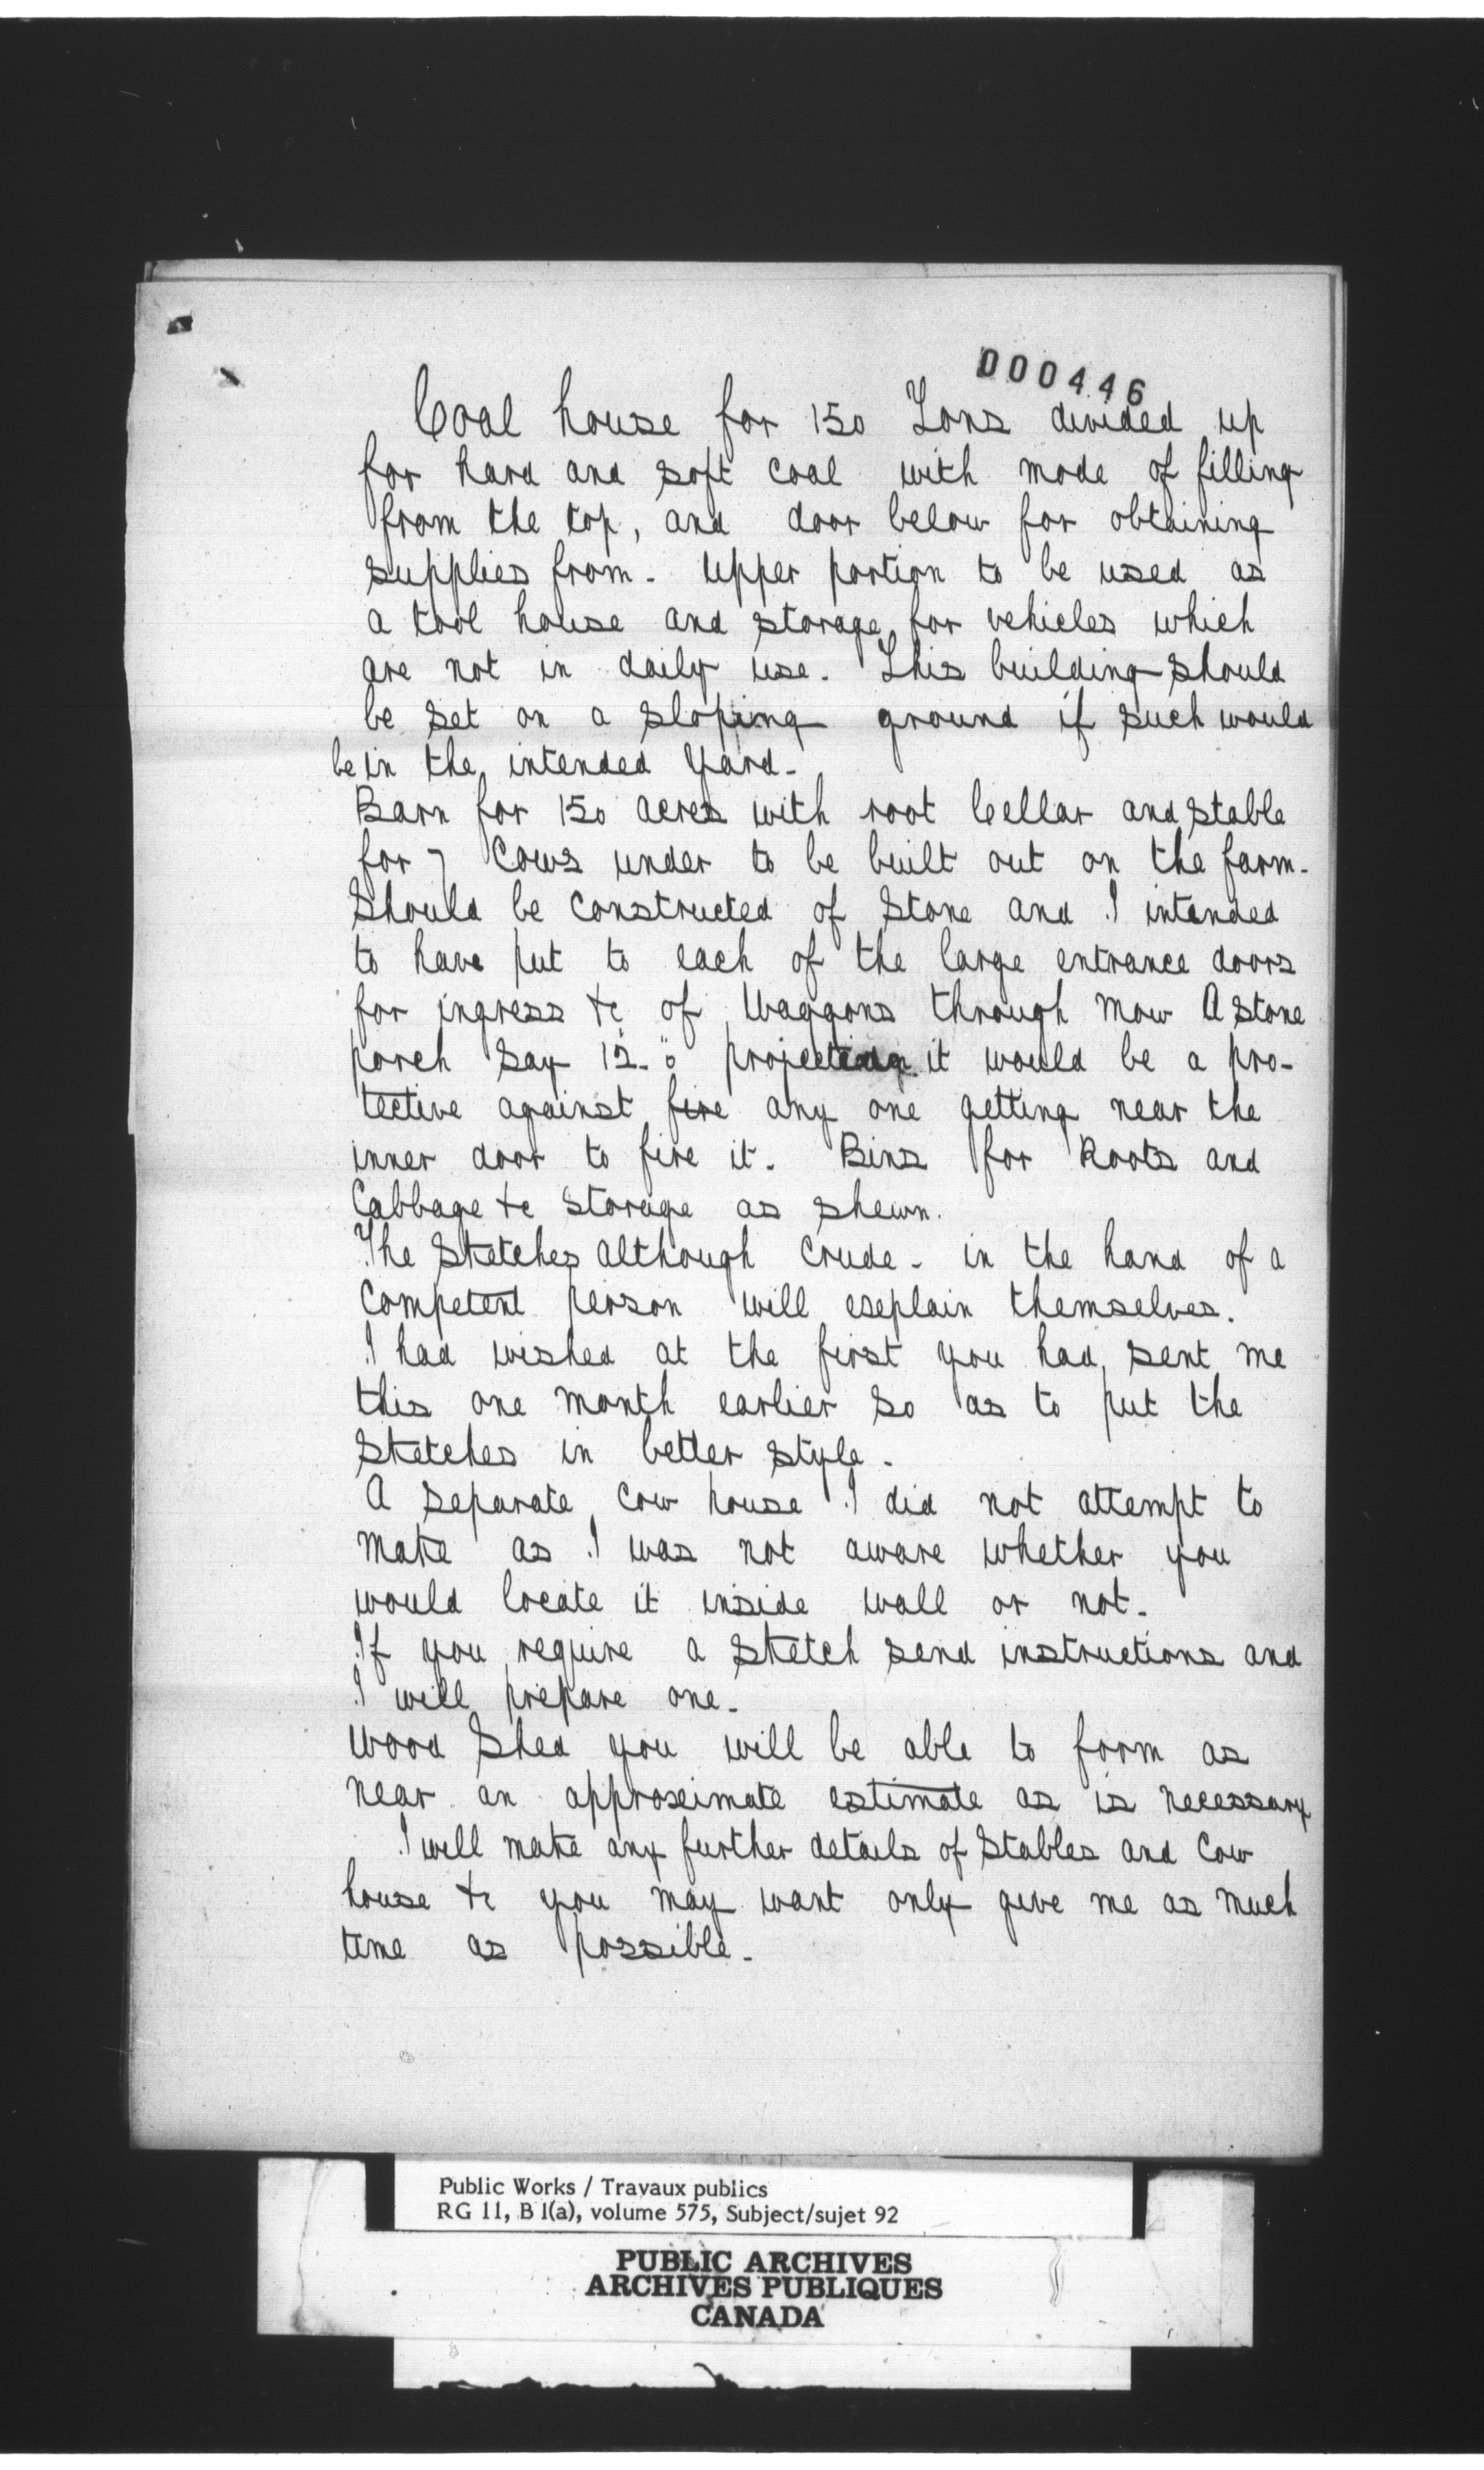 000446
Coal house for 150 Tons divided up
for hard and soft coal with mode of filling
from the top, and door below for obtaining
supplies from. Upper portion to be used as
a tool house and storage for vehicles which
are not in daily use. This building should
be set on a sloping ground if such would
be in the intended Yard.
Barn for 150 acres with root Cellar and Stable
for 7 Cows under to be built out on the farm.
Should be constructed of Stone and I intended
to have put to each of the large entrance doors
for ingress &c of Waggons through Mow A Stone
porch say 12.0 projection it would be a pro-
tective against fire any one getting near the
inner door to fire it. Bins for Roots and
Cabbage &c Storage as shewn.
The Sketches although Crude - in the hand of a
Competent person will explain themselves.
I had wished at the first you had sent me
this one month earlier so as to put the
Sketches in better style.
A separate Cow house I did not attempt to
Make as I was not aware whether you
would locate it inside wall or not.
If you require a Sketch send instructions and
I will prepare one.
Wood Shed you will be able to form as
near an approximate estimate as is necessary
I will make any further details of Stables and Cow
house &c you may want only give me as much
time as possible.
Public Works / Travaux publics
RG 11, B 1(a), volume 575, Subject/sujet 92
PUBLIC ARCHIVES
ARCHIVES PUBLIQUES
CANADA